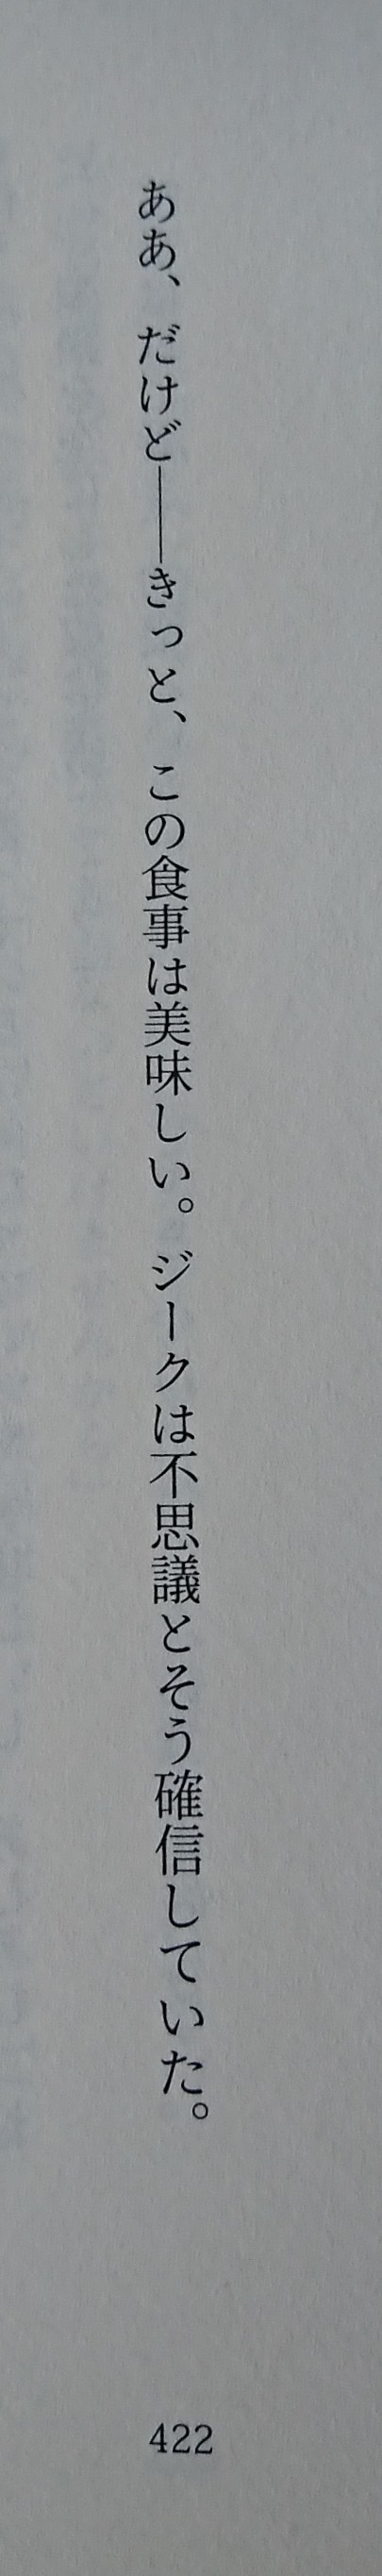 ああ、だけど――きっと、この食事は美味しい。ジークは不思議とそう確信していた。
422